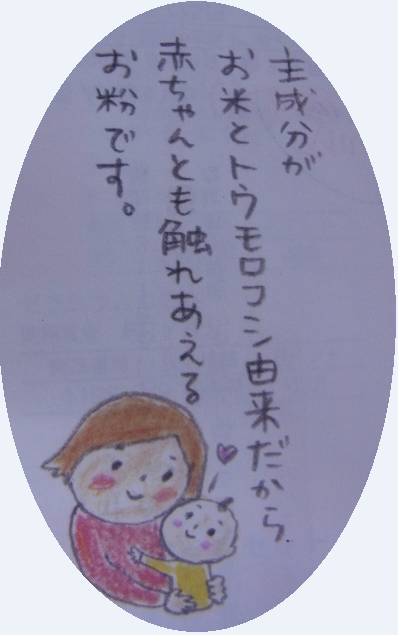 主成分が
お米とトウモロコシ由来だから
赤ちゃんとも触れあえる
お粉です。